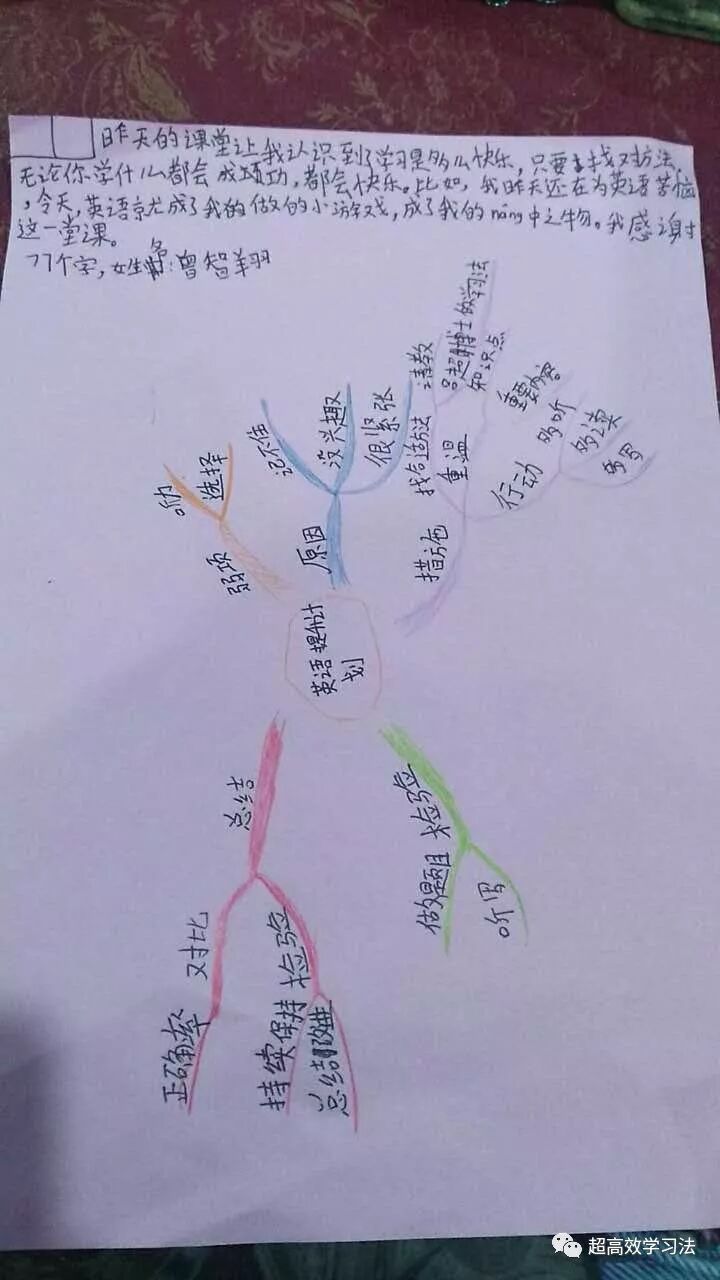 昨天的课堂让我认识到了学习是多么快乐，只要找对方法，
无论你学什么都会成功，都会快乐。比如，我昨天还在为英语苦恼
，今天，英语竟尤成了我的做的小游戏，成了我的náng中之物。我感谢
这一堂课。
77个字，姓名：曾智羽
英语提升计
划
弱项
听
选择
原因
记不住
没兴趣
很紧张
措施
找合适方法
请教
学习法
重温
知识点
重要内容
行动
多听
多读
多写
检验
做题目
听写
总结
对比
正确率
检验
持续保持
总结
超高效学习法